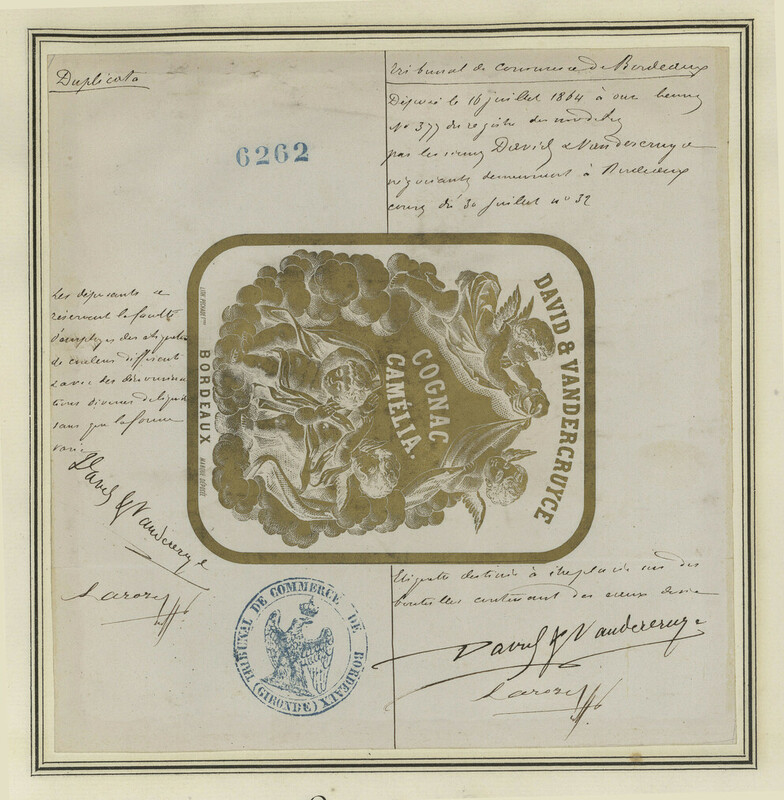 Duplicata
6262
Tribunal de Commerce de Bordeaux
Déposé le 16 juillet 1864 à onze heures
No 377 du registre des modèles
par les sieurs David & Vandercruyce
négociants demeurant à Bordeaux
cours du 30 Juillet no 32
DAVID & VANDERCRUYCE
COGNAC
CAMÉLIA.
BORDEAUX
MARQUE DÉPOSÉE
Les déposants se
réservent la faculté
d'employer des étiquettes
de couleurs différentes
& avec des dénomina
tions diverses de liquides
sans que la forme
varie
David & Vandercruyce
TRIBUNAL DE COMMERCE DE BORDEAUX
(GIRONDE)
Etiquette destinée à être placée sur des
bouteilles contenant des eaux de vie
David & Vandercruyce